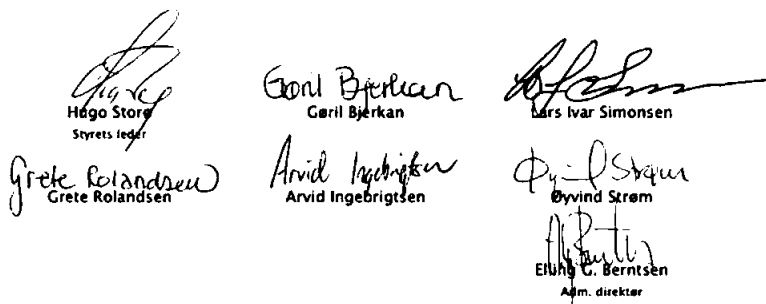 Hugo Storø
Styrets leder
Gøril Bjerkan
Gøril Bjerkan
Lars Ivar Simonsen
Grete Rolandsen
Grete Rolandsen
Arvid Ingebrigtsen
Arvid Ingebrigtsen
Øyvind Strøm
Øyvind Strøm
Elling G. Berntsen
Adm. direktør